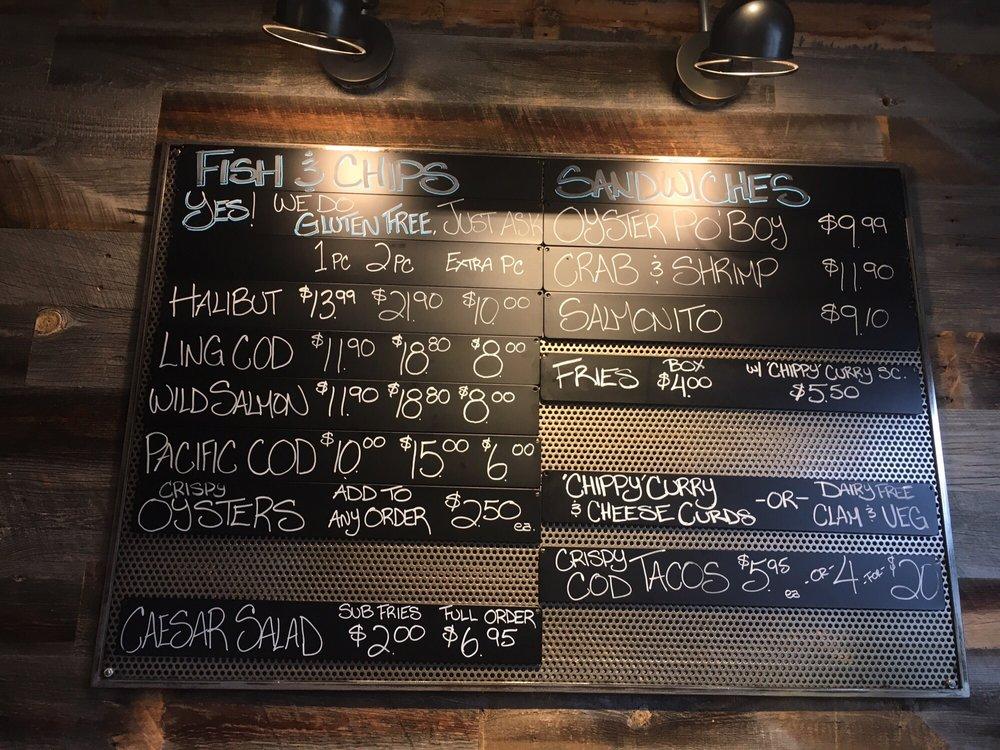 FISH & CHIPS
YES! WE DO
GLUTEN FREE, JUST ASK
1 PC 2 PC EXTRA PC
HALIBUT $13.99 $21.90 $10.00
LING COD $11.90 $18.80 $8.00
WILD SALMON $11.90 $18.80 $8.00
PACIFIC COD $10.00 $15.00 $6.00
CRISPY OYSTERS ADD TO ANY ORDER $2.50 ea.
CAESAR SALAD SUB FRIES $2.00 FULL ORDER $6.95
SANDWICHES
OYSTER PO'BOY $9.99
CRAB & SHRIMP $11.90
SALMONITO $9.10
FRIES BOX $4.00 W/ 'CHIPPY' CURRY SC. $5.50
'CHIPPY' CURRY & CHEESE CURDS -OR- DAIRY FREE CLAM & VEG
CRISPY COD TACOS $5.95 ea -OR- 4 -FOR- $20